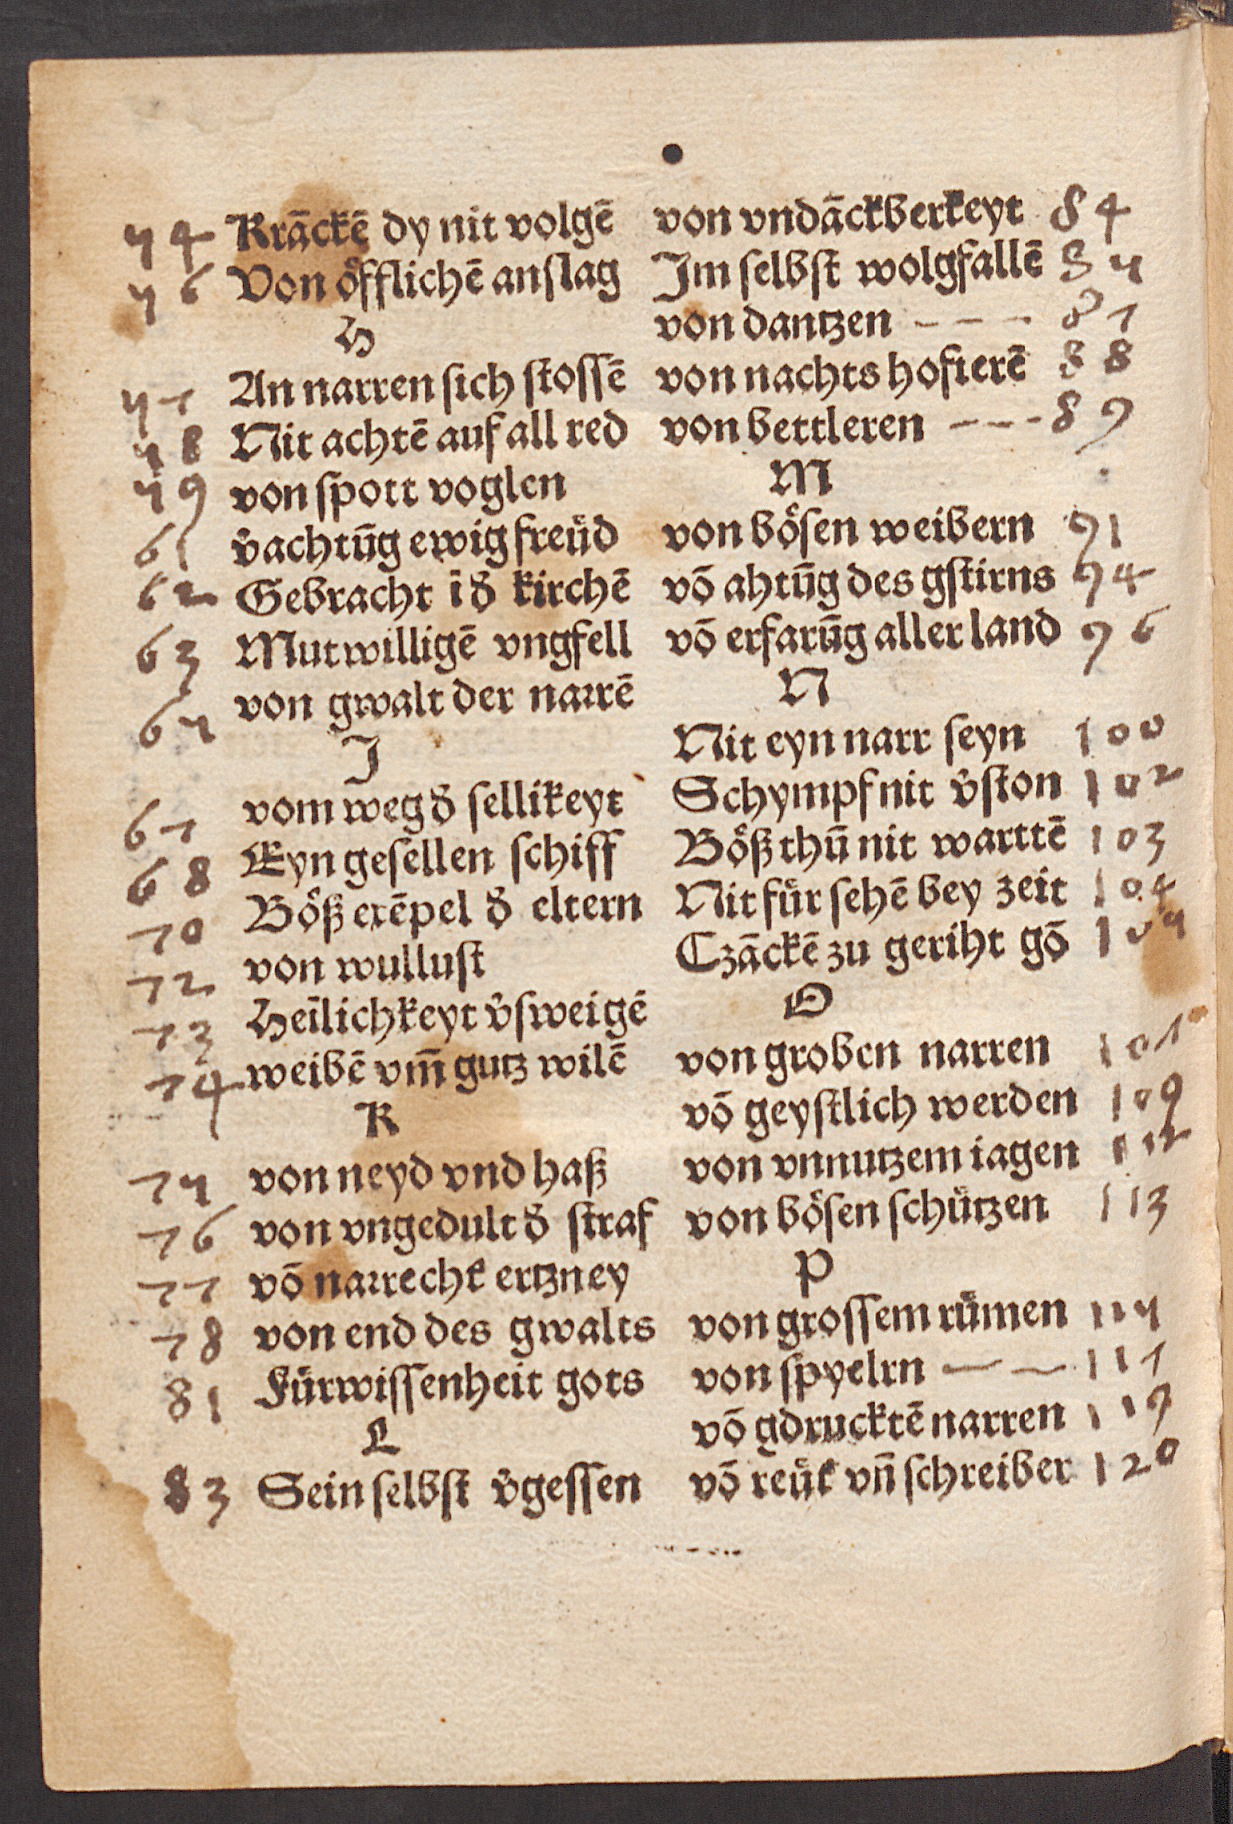 54 Krāckē dy nit volgē
56 Von öfflichē anslag
H
57 An narren sich stossē
58 Nit achtē auf all red
59 von spott voglen
61 v̄achtūg ewig freüd
62 Gebracht ī d̄ kirchē
63 Mutwilligē vngfell
65 von gwalt der narrē
J
67 vom weg d̄ sellikeyt
68 Eyn gesellen schiff
70 Böß exēpel d̄ eltern
72 von wullust
73 Heīlichkeyt v̄sweigē
74 weibē vm̄ gutz wilē
K
75 von neyd vnd haß
76 von vngedult d̄ straf
77 vō narrecht ertzney
78 von end des gwalts
81 Fürwissenheit gots
L
83 Sein selbst v̄gessen
von vndāckberkeyt 84
Im selbst wolgfallē 85
von dantzen --- 87
von nachts hofierē 88
von bettleren --- 89
M
von bösen weibern 91
vō ahtūg des gstirns 94
vō erfarūg aller land 96
N
Nit eyn narr seyn 100
Schympf nit v̄ston 102
Böß thū nit warttē 103
Nit für sehē bey zeit 104
Czāckē zu geriht gō 105
O
von groben narren 107
vō geystlich werden 109
von vnnutzem iagen 112
von bösen schützen 113
P
von grossem rümen 115
von spyelrn -- 117
vō gdrucktē narren 119
vō reüt vn̄ schreiber 120